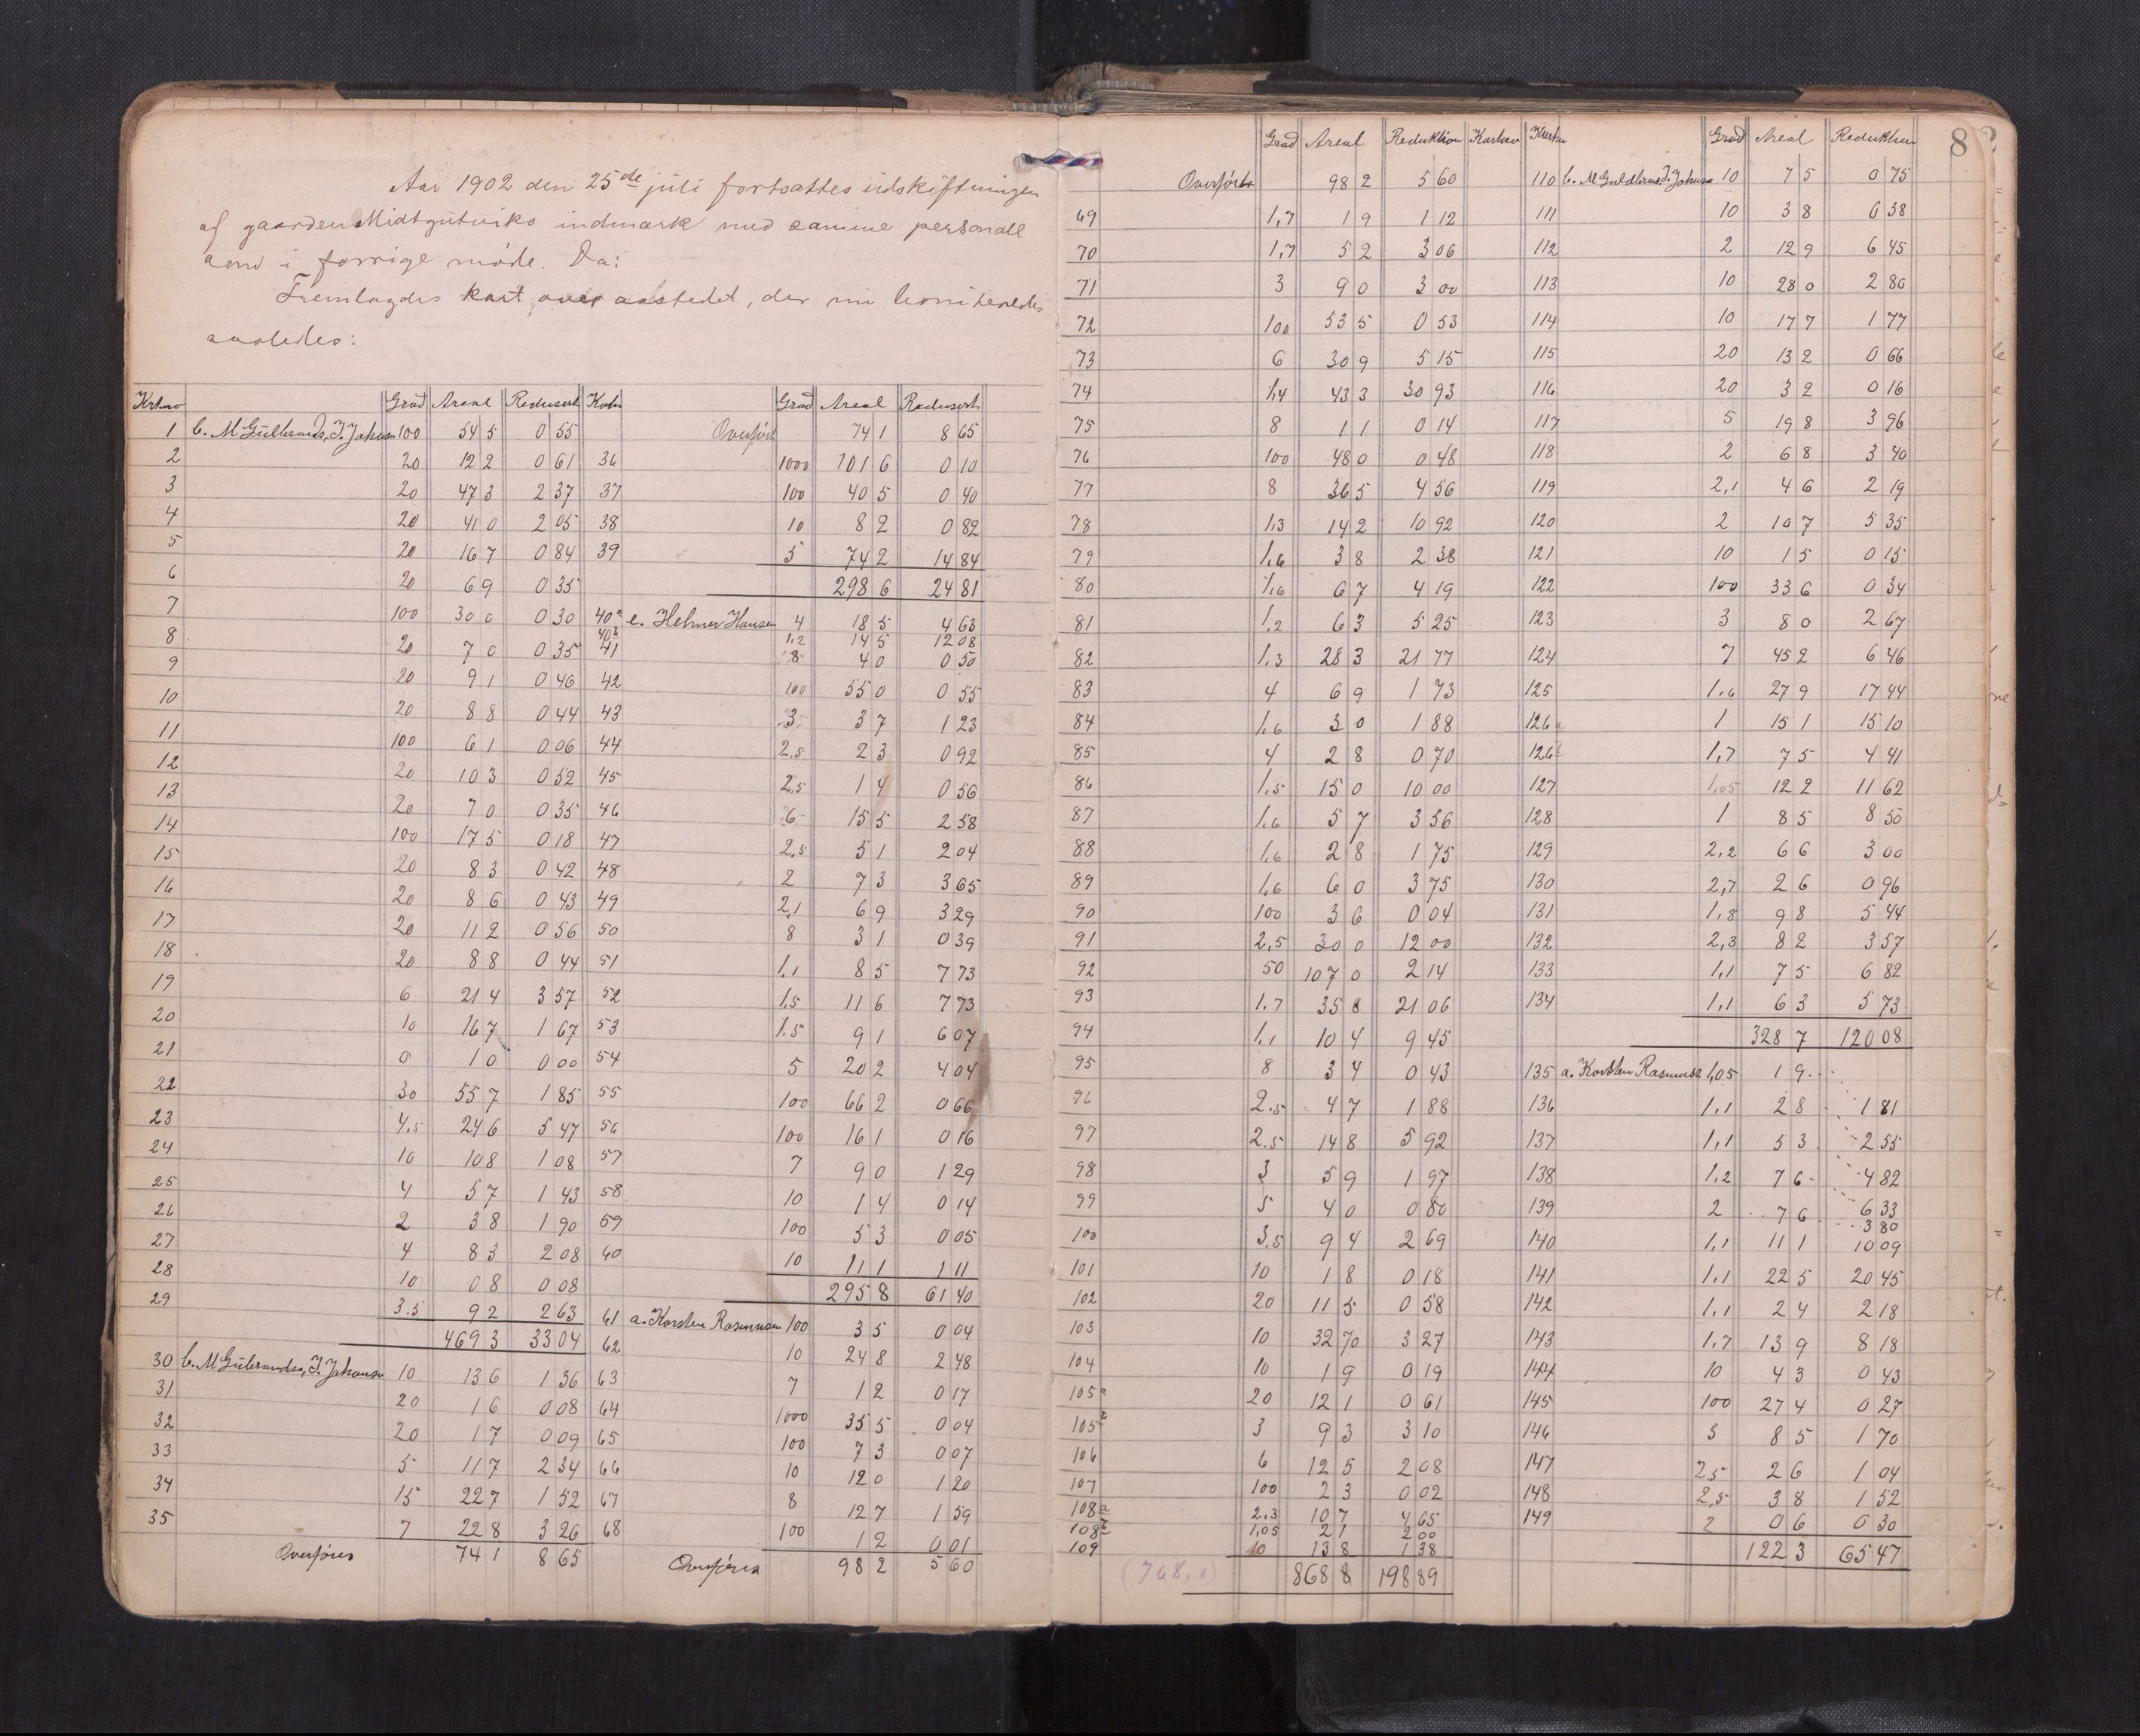 Aar 1902 den 25de juli fortsattes udskiftningen
af gaarden Midtgutviks indmark med samme personale
som i forrige møde. Da:
Fremlagdes kart over aastedet, der nu boniteredes
saaledes:
Krtno Grad Areal Redusert
1 b. M Gulbrands, J. Johansen 100 54 5 0 55
2 20 12 2 0 61
3 20 47 3 2 37
4 20 41 0 2 05
5 20 16 7 0 84
6 20 6 9 0 35
7 100 30 0 0 30
8 20 7 0 0 35
9 20 9 1 0 46
10 20 8 8 0 44
11 100 6 1 0 06
12 20 10 3 0 52
13 20 7 0 0 35
14 100 17 5 0 18
15 20 8 3 0 42
16 20 8 6 0 43
17 20 11 2 0 56
18 20 8 8 0 44
19 6 21 4 3 57
20 10 16 7 1 67
21 0 1 0 0 00
22 30 55 7 1 85
23 4,5 24 6 5 47
24 10 10 8 1 08
25 4 5 7 1 43
26 2 3 8 1 90
27 4 8 3 2 08
28 10 0 8 0 08
29 3.5 9 2 2 63
469 3 33 04
30 b. M Gulbrandsn, J. Johansn 10 13 6 1 36
31 20 1 6 0 08
32 20 1 7 0 09
33 5 11 7 2 34
34 15 22 7 1 52
35 7 22 8 3 26
Overføres 74 1 8 65
Kartn Grad Areal Redusert
Overført 74 1 8 65
36 1000 101 6 0 10
37 100 40 5 0 40
38 10 8 2 0 82
39 5 74 2 14 84
298 6 24 81
40a c. Helmer Hansen 4 18 5 4 63
40b 1,2 14 5 12 08
41 8 4 0 0 50
42 100 55 0 0 55
43 3 3 7 1 23
44 2,5 2 3 0 92
45 2,5 1 4 0 56
46 6 15 5 2 58
47 2,5 5 1 2 04
48 2 7 3 3 65
49 2,1 6 9 3 29
50 8 3 1 0 39
51 1,1 8 5 7 73
52 1,5 11 6 7 73
53 1.5 9 1 6 07
54 5 20 2 4 04
55 100 66 2 0 66
56 100 16 1 0 16
57 7 9 0 1 29
58 10 1 4 0 14
59 100 5 3 0 05
60 10 11 1 1 11
295 8 61 40
61 a. Korsten Rasmussen 100 3 5 0 04
62 10 24 8 2 48
63 7 1 2 0 17
64 1000 35 5 0 04
65 100 7 3 0 07
66 10 12 0 1 20
67 8 12 7 1 59
68 100 1 2 0 01
Overføres 98 2 5 60
Grad Areal Reduktion Kartno
Overførtes 98 2 5 60
69 1,7 1 9 1 12
70 1,7 5 2 3 06
71 3 9 0 3 00
72 100 53 5 0 53
73 6 30 9 5 15
74 1,4 43 3 30 93
75 8 1 1 0 14
76 100 48 0 0 48
77 8 36 5 4 56
78 1,3 14 2 10 92
79 1,6 3 8 2 38
80 1,6 6 7 4 19
81 1,2 6 3 5 25
82 1.3 28 3 21 77
83 4 6 9 1 73
84 1,6 3 0 1 88
85 4 2 8 0 70
86 1,5 15 0 10 00
87 1,6 5 7 3 56
88 1,6 2 8 1 75
89 1,6 6 0 3 75
90 100 3 6 0 04
91 2,5 30 0 12 00
92 50 107 0 2 14
93 1.7 35 8 21 06
94 1,1 10 4 9 45
95 8 3 4 0 43
96 2.5 4 7 1 88
97 2.5 14 8 5 92
98 3 5 9 1 97
99 5 4 0 0 80
100 3.5 9 4 2 69
101 10 1 8 0 18
102 20 11 5 0 58
103 10 32 70 3 27
104 10 1 9 0 19
105a 20 12 1 0 61
105b 3 9 3 3 10
106 6 12 5 2 08
107 100 2 3 0 02
108a 2.3 10 7 4 65
108b 1,05 2 1 2 00
109 10 13 8 1 38
(768,8) 868 8 198 89
Kartn Grad Areal Reduktion 8
110 b. M Guldbrands. J. Johansn 10 7 5 0 75
111 10 3 8 0 38
112 2 12 9 6 45
113 10 28 0 2 80
114 10 17 7 1 77
115 20 13 2 0 66
116 20 3 2 0 16
117 5 19 8 3 96
118 2 6 8 3 40
119 2,1 4 6 2 19
120 2 10 7 5 35
121 10 1 5 0 15
122 100 33 6 0 34
123 3 8 0 2 67
124 7 45 2 6 46
125 1,6 27 9 17 44
126a 1 15 1 15 10
126b 1,7 7 5 4 41
127 1,05 12 2 11 62
128 1 8 5 8 50
129 2,2 6 6 3 00
130 2,7 2 6 0 96
131 1,8 9 8 5 44
132 2,3 8 2 3 57
133 1,1 7 5 6 82
134 1,1 6 3 5 73
328 7 120 08
135 a. Korsten Rasmussn 1,05 1 9
136 1.1 2 8 1 81
137 1,1 5 3 2 55
138 1,2 7 6 4 82
139 2 7 6 6 33
3 80
140 1,1 11 1 10 09
141 1.1 22 5 20 45
142 1,1 2 4 2 18
143 1.7 13 9 8 18
144 10 4 3 0 43
145 100 27 4 0 27
146 5 8 5 1 70
147 2,5 2 6 1 04
148 2,5 3 8 1 52
149 2 0 6 0 30
122 3 65 47